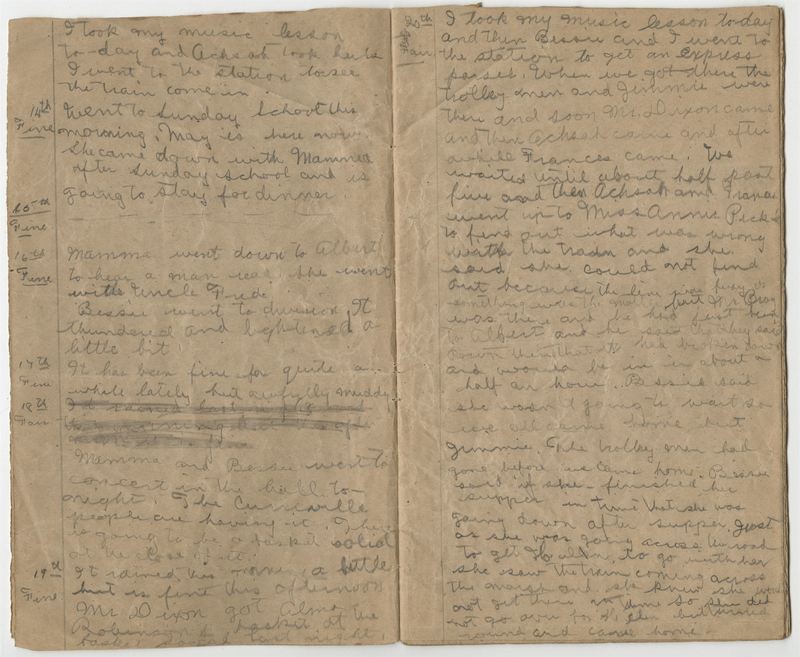 I took my music lesson
to-day and Achsah took hers
I went to the station to see
the train come in.
14th
Fine
Went to Sunday School this
morning. May is here now.
She came down with Mamma
after Sunday school and is
going to stay for dinner.
15th
Fine
16th
Fine
Mamma went down to Albert
to hear a man read. She went
with Uncle Fred.
Bessie went to division. It
thundered and lightened a
little bit.
17th
Fine
It has been fine for quite a
while lately but awfully muddy
18th
Fair
It rained last night and
this morning but
Mamma and Bessie went to
concert in the hall to-
night. The Curryville
people are having it. There
is going to be a basket social
at the close of it.
19th
Fine
It rained this morning a little
but is fine this afternoon
Mr. Dixon got Alma
Robinson's basket at the
basket social last night.
20th
Fair
I took my music lesson to-day
and then Bessie and I went to
the station to get an express
parcel. When we got there the
trolley men and Jimmie were
there and soon Mr. Dixon came
and then Achsah came and after
awhile Frances came. We
waited until about half past
five and then Achsah and Frances
went up to Miss Annie Peck's
to find out what was wrong
with the train and she
said she could not find
out because the line was busy or
something was the matter but Mr. Bray
was there and he had just been
to Albert and he said that they said
down there that it had broken down
and would be in in about a
half an hour. Bessie said
she wasn't going to wait so
we all came home but
Jimmie. The trolley men had
gone before we came home. Bessie
said if she finished her
supper in time that she was
going down after supper. Just
as she was going across the road
to get to go with her
she saw the train coming across
the marsh and she knew she would
not get there in time so she did
not go over for but turned
round and came home.